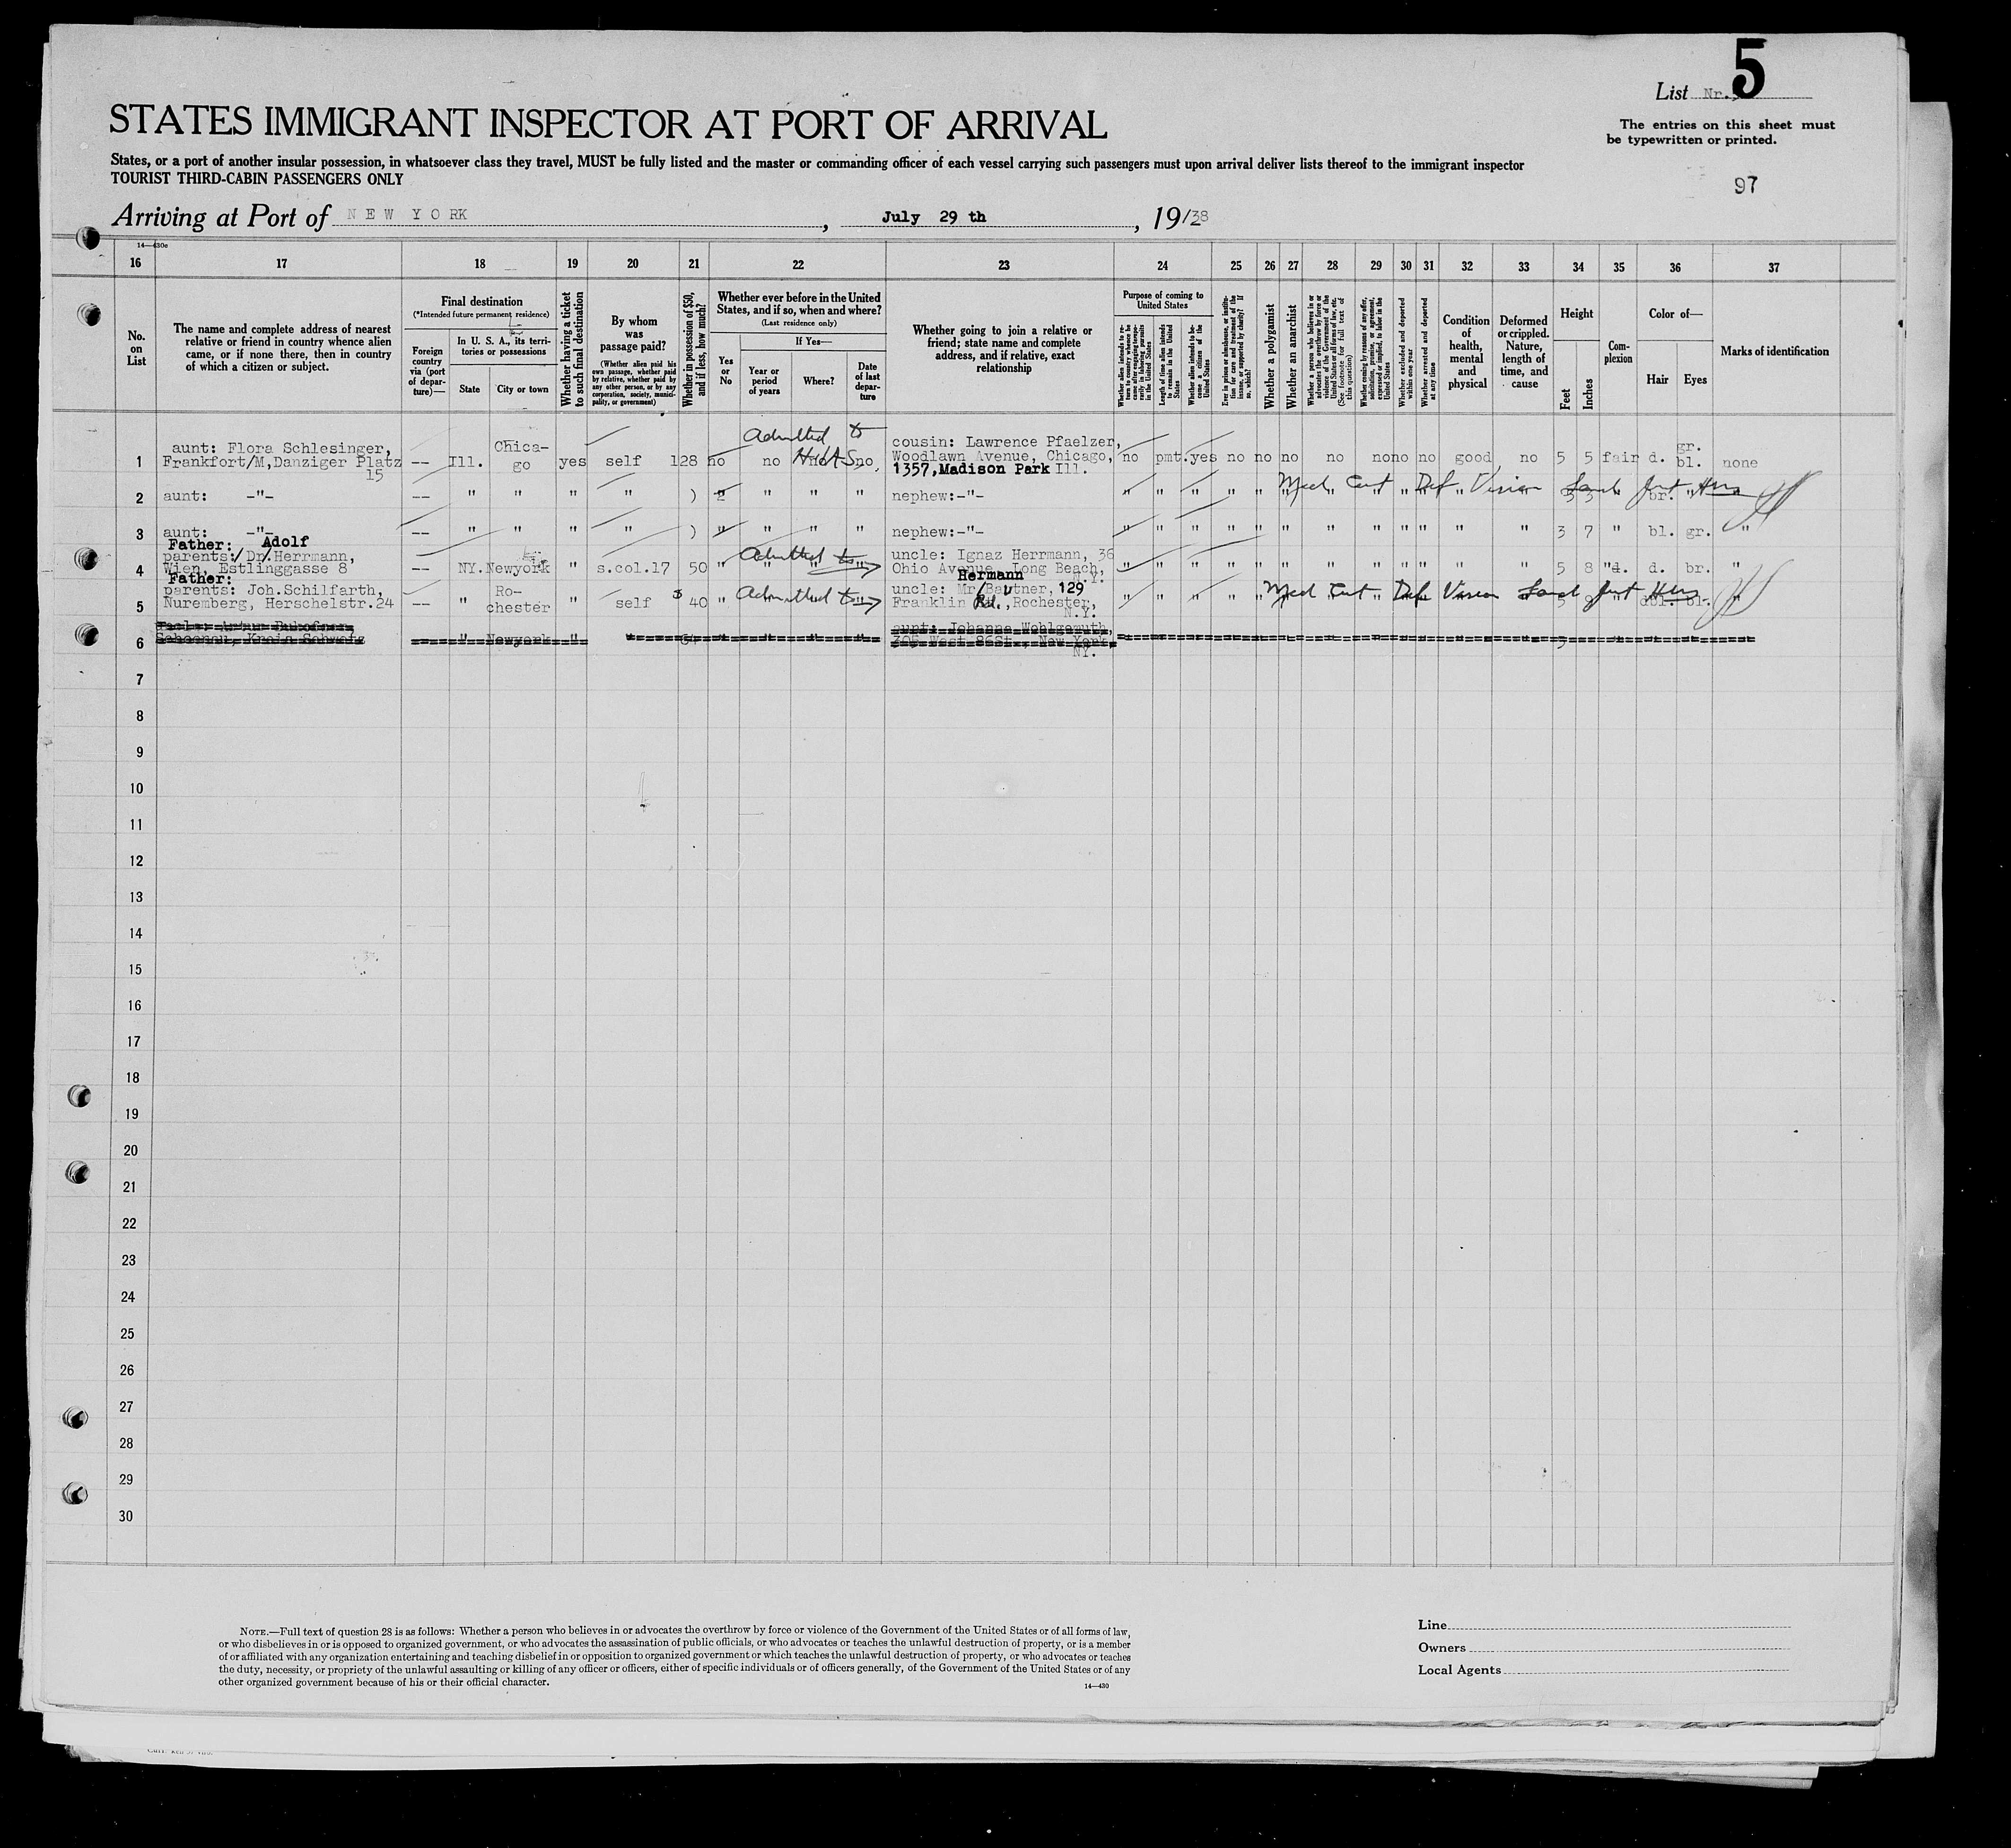 List Nr. 5
STATES IMMIGRANT INSPECTOR AT PORT OF ARRIVAL
The entries on this sheet must
be typewritten or printed.
States, or a port of another insular possession, in whatsoever class they travel, MUST be fully listed and the master or commanding officer of each vessel carrying such passengers must upon arrival deliver lists thereof to the immigrant inspector
TOURIST THIRD-CABIN PASSENGERS ONLY
97
Arriving at Port of NEW YORK, July 29 th, 19/38
14—430e
16 17 18 19 20 21 22 23 24 25 26 27 28 29 30 31 32 33 34 35 36 37
No. on List
The name and complete address of nearest
relative or friend in country whence alien
came, or if none there, then in country
of which a citizen or subject.
Final destination
(*Intended future permanent residence)
Foreign country via (port of departure)—
In U. S. A., its territories or possessions
State
City or town
Whether having a ticket to such final destination
By whom was passage paid?
(Whether alien paid his own passage, whether paid by relative, whether paid by any other person, or by any corporation, society, municipality, or government)
Whether in possession of $50, and if less, how much?
Whether ever before in the United States, and if so, when and where?
(Last residence only)
Yes or No
If Yes—
Year or period of years
Where?
Date of last departure
Whether going to join a relative or
friend; state name and complete
address, and if relative, exact
relationship
Purpose of coming to United States
Whether alien intends to return to country whence he came after engaging temporarily in laboring pursuits in the United States
Length of time alien intends to remain in the United States
Whether alien intends to become a citizen of the United States
Ever in prison or almshouse, or institution for care and treatment of the insane, or supported by charity? If so, which?
Whether a polygamist
Whether an anarchist
Whether a person who believes in or advocates the overthrow by force or violence of the Government of the United States or all forms of law, etc. (See footnote for full text of this question)
Whether coming by reasons of any offer, solicitation, promise, or agreement, expressed or implied, to labor in the United States
Whether excluded and deported within one year
Whether arrested and deported at any time
Condition of health, mental and physical
Deformed or crippled. Nature, length of time, and cause
Height
Feet
Inches
Complexion
Color of—
Hair
Eyes
Marks of identification
Admitted to
H I A S
1 aunt: Flora Schlesinger, Frankfort/M,Danziger Platz 15 -- Ill. Chica-go yes self 128 no no no, cousin: Lawrence Pfaelzer, Woodlawn Avenue, Chicago, 1357,Madison Park Ill. no pmt. yes no no no no no no no good no 5 5 fair d. gr. bl. none
2 aunt: -"- -- " " " " ) " " " nephew:-"- " " " " " " " " " " " " br. "
Med Cert Def Vision
3 aunt: -"- -- " " " " ) " " " " nephew:-"- " " " " " " " " " " " " 3 7 " bl. gr. "
4 Father: Adolf parents:/Dr. Herrmann, Wien, Estlinggasse 8 -- NY. Newyork " s.col.17 50 " " " " uncle: Ignaz Herrmann, 36 Ohio Avenue, Long Beach, N.Y. " " " " " " " " " " " " 5 8 "d. d. br. "
Admitted to
5 Father: parents: Joh.Schilfarth, Nuremberg, Herschelstr.24 -- " Ro-chester " self $ 40 " " " Hermann uncle: Mr. Bautner, 129 Franklin Rd., Rochester, N.Y. " " " " " " " " " " " "
Admitted to
Med Cert Def Vision
6 Newyork " aunt: Johanna Wohlgemuth, 305 West 86St., New York, NY.
7
8
9
10
11
12
13
14
15
16
17
18
19
20
21
22
23
24
25
26
27
28
29
30
NOTE.—Full text of question 28 is as follows: Whether a person who believes in or advocates the overthrow by force or violence of the Government of the United States or of all forms of law,
or who disbelieves in or is opposed to organized government, or who advocates the assassination of public officials, or who advocates or teaches the unlawful destruction of property, or is a member
of or affiliated with any organization entertaining and teaching disbelief in or opposition to organized government or which teaches the unlawful destruction of property, or who advocates or teaches
the duty, necessity, or propriety of the unlawful assaulting or killing of any officer or officers, either of specific individuals or of officers generally, of the Government of the United States or of any
other organized government because of his or their official character.
14—430
Line
Owners
Local Agents